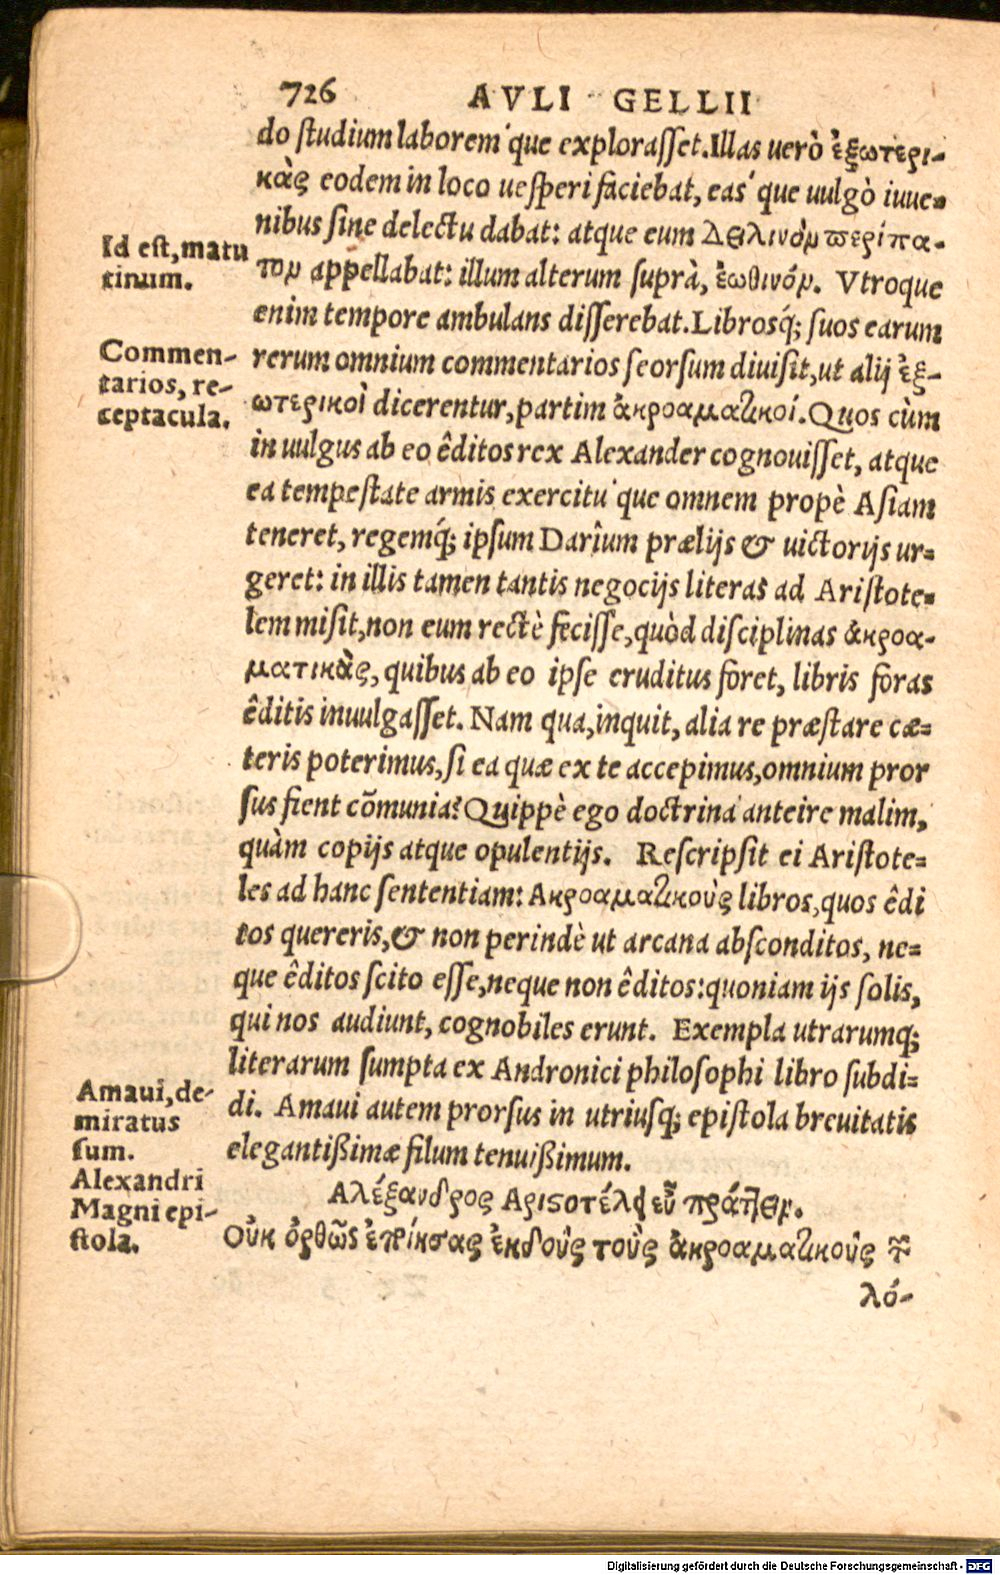 726 AVLI GELLII
do studium laborem'que explorasset. Illas uerò ἐξωτερι-
κὰς eodem in loco uesperi faciebat, eas'que uulgò iuue-
nibus sine delectu dabat: atque eum Δειλινὸν περίπα-
τον appellabat: illum alterum suprà, ἑωθινόν. Vtroque
enim tempore ambulans disserebat. Librosq́; suos earum
rerum omnium commentarios seorsum diuisit, ut alij ἐξ-
ωτερικοὶ dicerentur, partim ἀκροαματικοί. Quos cùm
in uulgus ab eo êditos rex Alexander cognouisset, atque
ea tempestate armis exercitu'que omnem propè Asiam
teneret, regemq́; ipsum Darîum prælijs & uictorijs ur-
geret: in illis tamen tantis negocijs literas ad Aristote-
lem misit, non eum rectè fecisse, quòd disciplinas ἀκροα-
ματικὰς, quibus ab eo ipse eruditus foret, libris foras
êditis inuulgasset. Nam qua, inquit, alia re præstare cæ-
teris poterimus, si ea quæ ex te accepimus, omnium pror
sus fient cõmunia? Quippè ego doctrina anteire malim,
quàm copijs atque opulentijs. Rescripsit ei Aristote-
les ad hanc sententiam: Ακροαματικοὺς libros, quos êdi
tos quereris, & non perindè ut arcana absconditos, ne-
que êditos scito esse, neque non êditos: quoniam ijs solis,
qui nos audiunt, cognobiles erunt. Exempla utrarumq;
literarum sumpta ex Andronici philosophi libro subdi-
di. Amaui autem prorsus in utriusq; epistola breuitatis
elegantißimæ filum tenuißimum.
Αλέξανδρος Αριστοτέλει εὖ πράττειν.
Οὐκ ὀρθῶς ἐποίησας ἐκδοὺς τοὺς ἀκροαματικοὺς τῶν
λό-
Id est, matu
tinum.
Commen-
tarios, re-
ceptacula.
Amaui, de-
miratus
sum.
Alexandri
Magni epi-
stola.
Digitalisierung gefördert durch die Deutsche Forschungsgemeinschaft - DFG